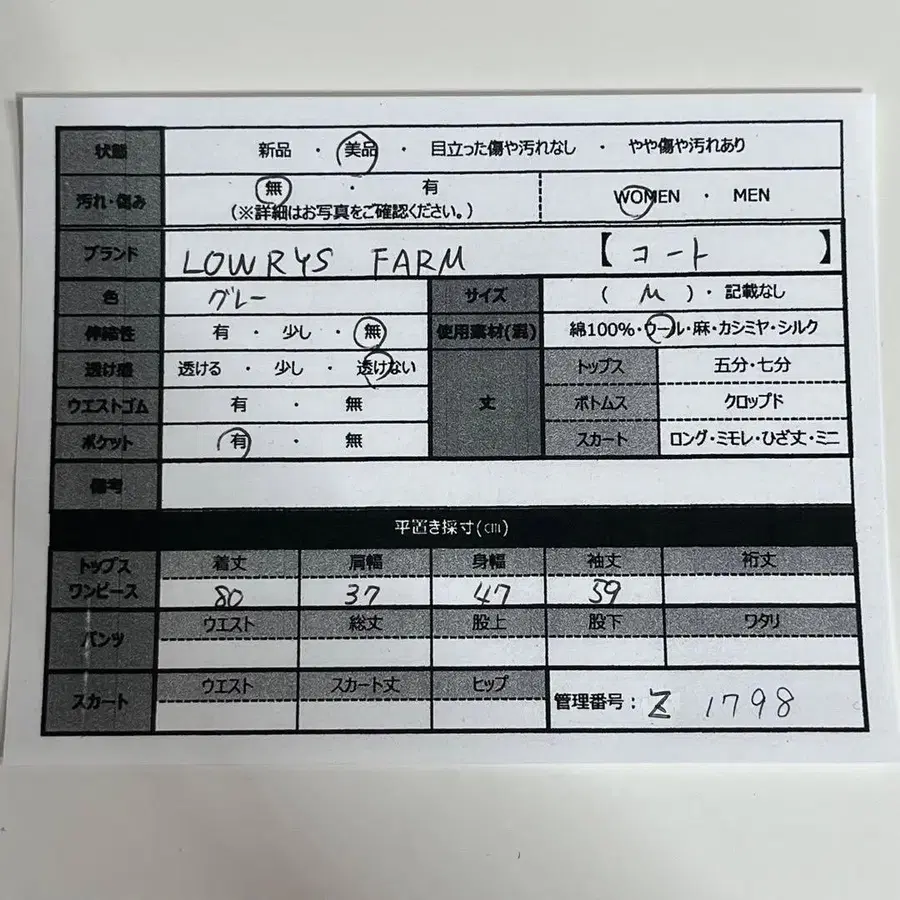 状態 新品 ・ 美品 ・ 目立った傷や汚れなし ・ やや傷や汚れあり
汚れ・傷み 無 ・ 有 WOMEN ・ MEN
(※詳細はお写真をご確認ください。)
ブランド LOWRYS FARM 【コート】
色 グレー サイズ ( M )・記載なし
伸縮性 有 ・ 少し ・ 無 使用素材(混) 綿100%・ウール・麻・カシミヤ・シルク
透け感 透ける ・ 少し ・ 透けない 丈 トップス 五分・七分
ウエストゴム 有 ・ 無 ボトムス クロップド
ポケット 有 ・ 無 スカート ロング・ミモレ・ひざ丈・ミニ
備考
平置き採寸(㎝)
トップス 着丈 肩幅 身幅 袖丈 裄丈
ワンピース 80 37 47 59
パンツ ウエスト 総丈 股上 股下 ワタリ
スカート ウエスト スカート丈 ヒップ 管理番号：Z 1798